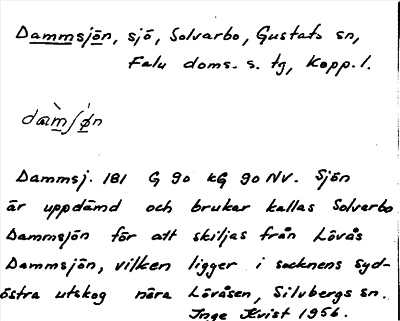 Dammsjön, sjö, Solvarbo, Gustafs sn,
Falu doms. s. tg, Kopp. l.
dàmʃǿn
Dammsj. 181 G 90 kG 90 NV. Sjön
är uppdämd och brukar kallas Solvarbo
Dammsjön för att skiljas från Lövås
Dammsjön, vilken ligger i socknens syd-
östra utskog nära Lövåsen, Silvbergs sn.
Inge Kvist 1956.